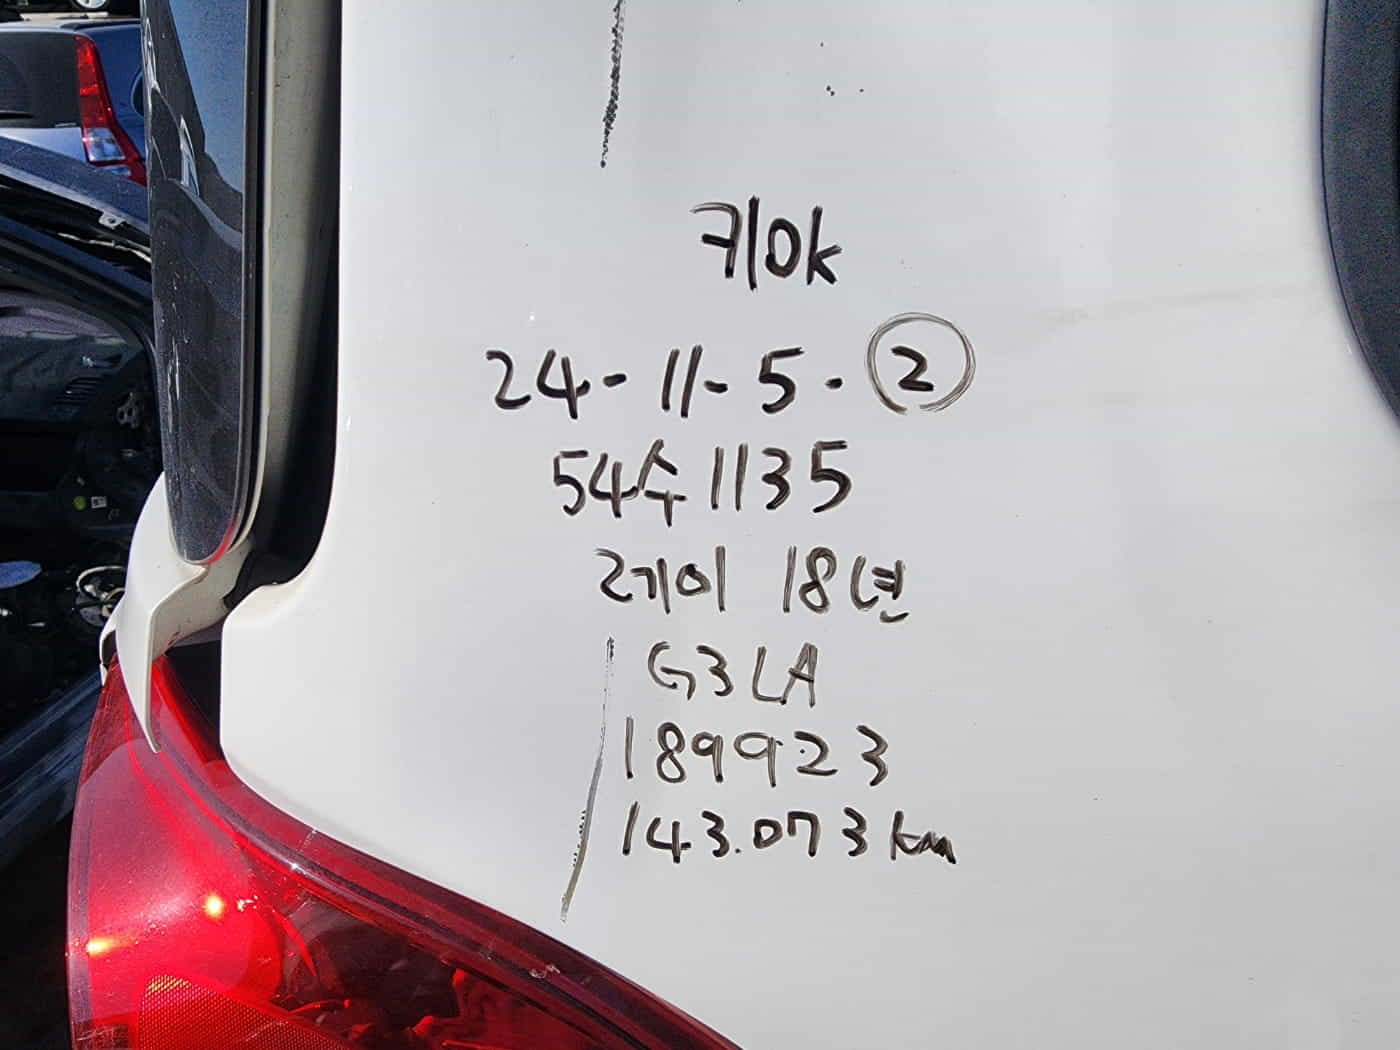 기아k
24-11-5. ②
54수1135
레이 18년
G3LA
189923
143.073km